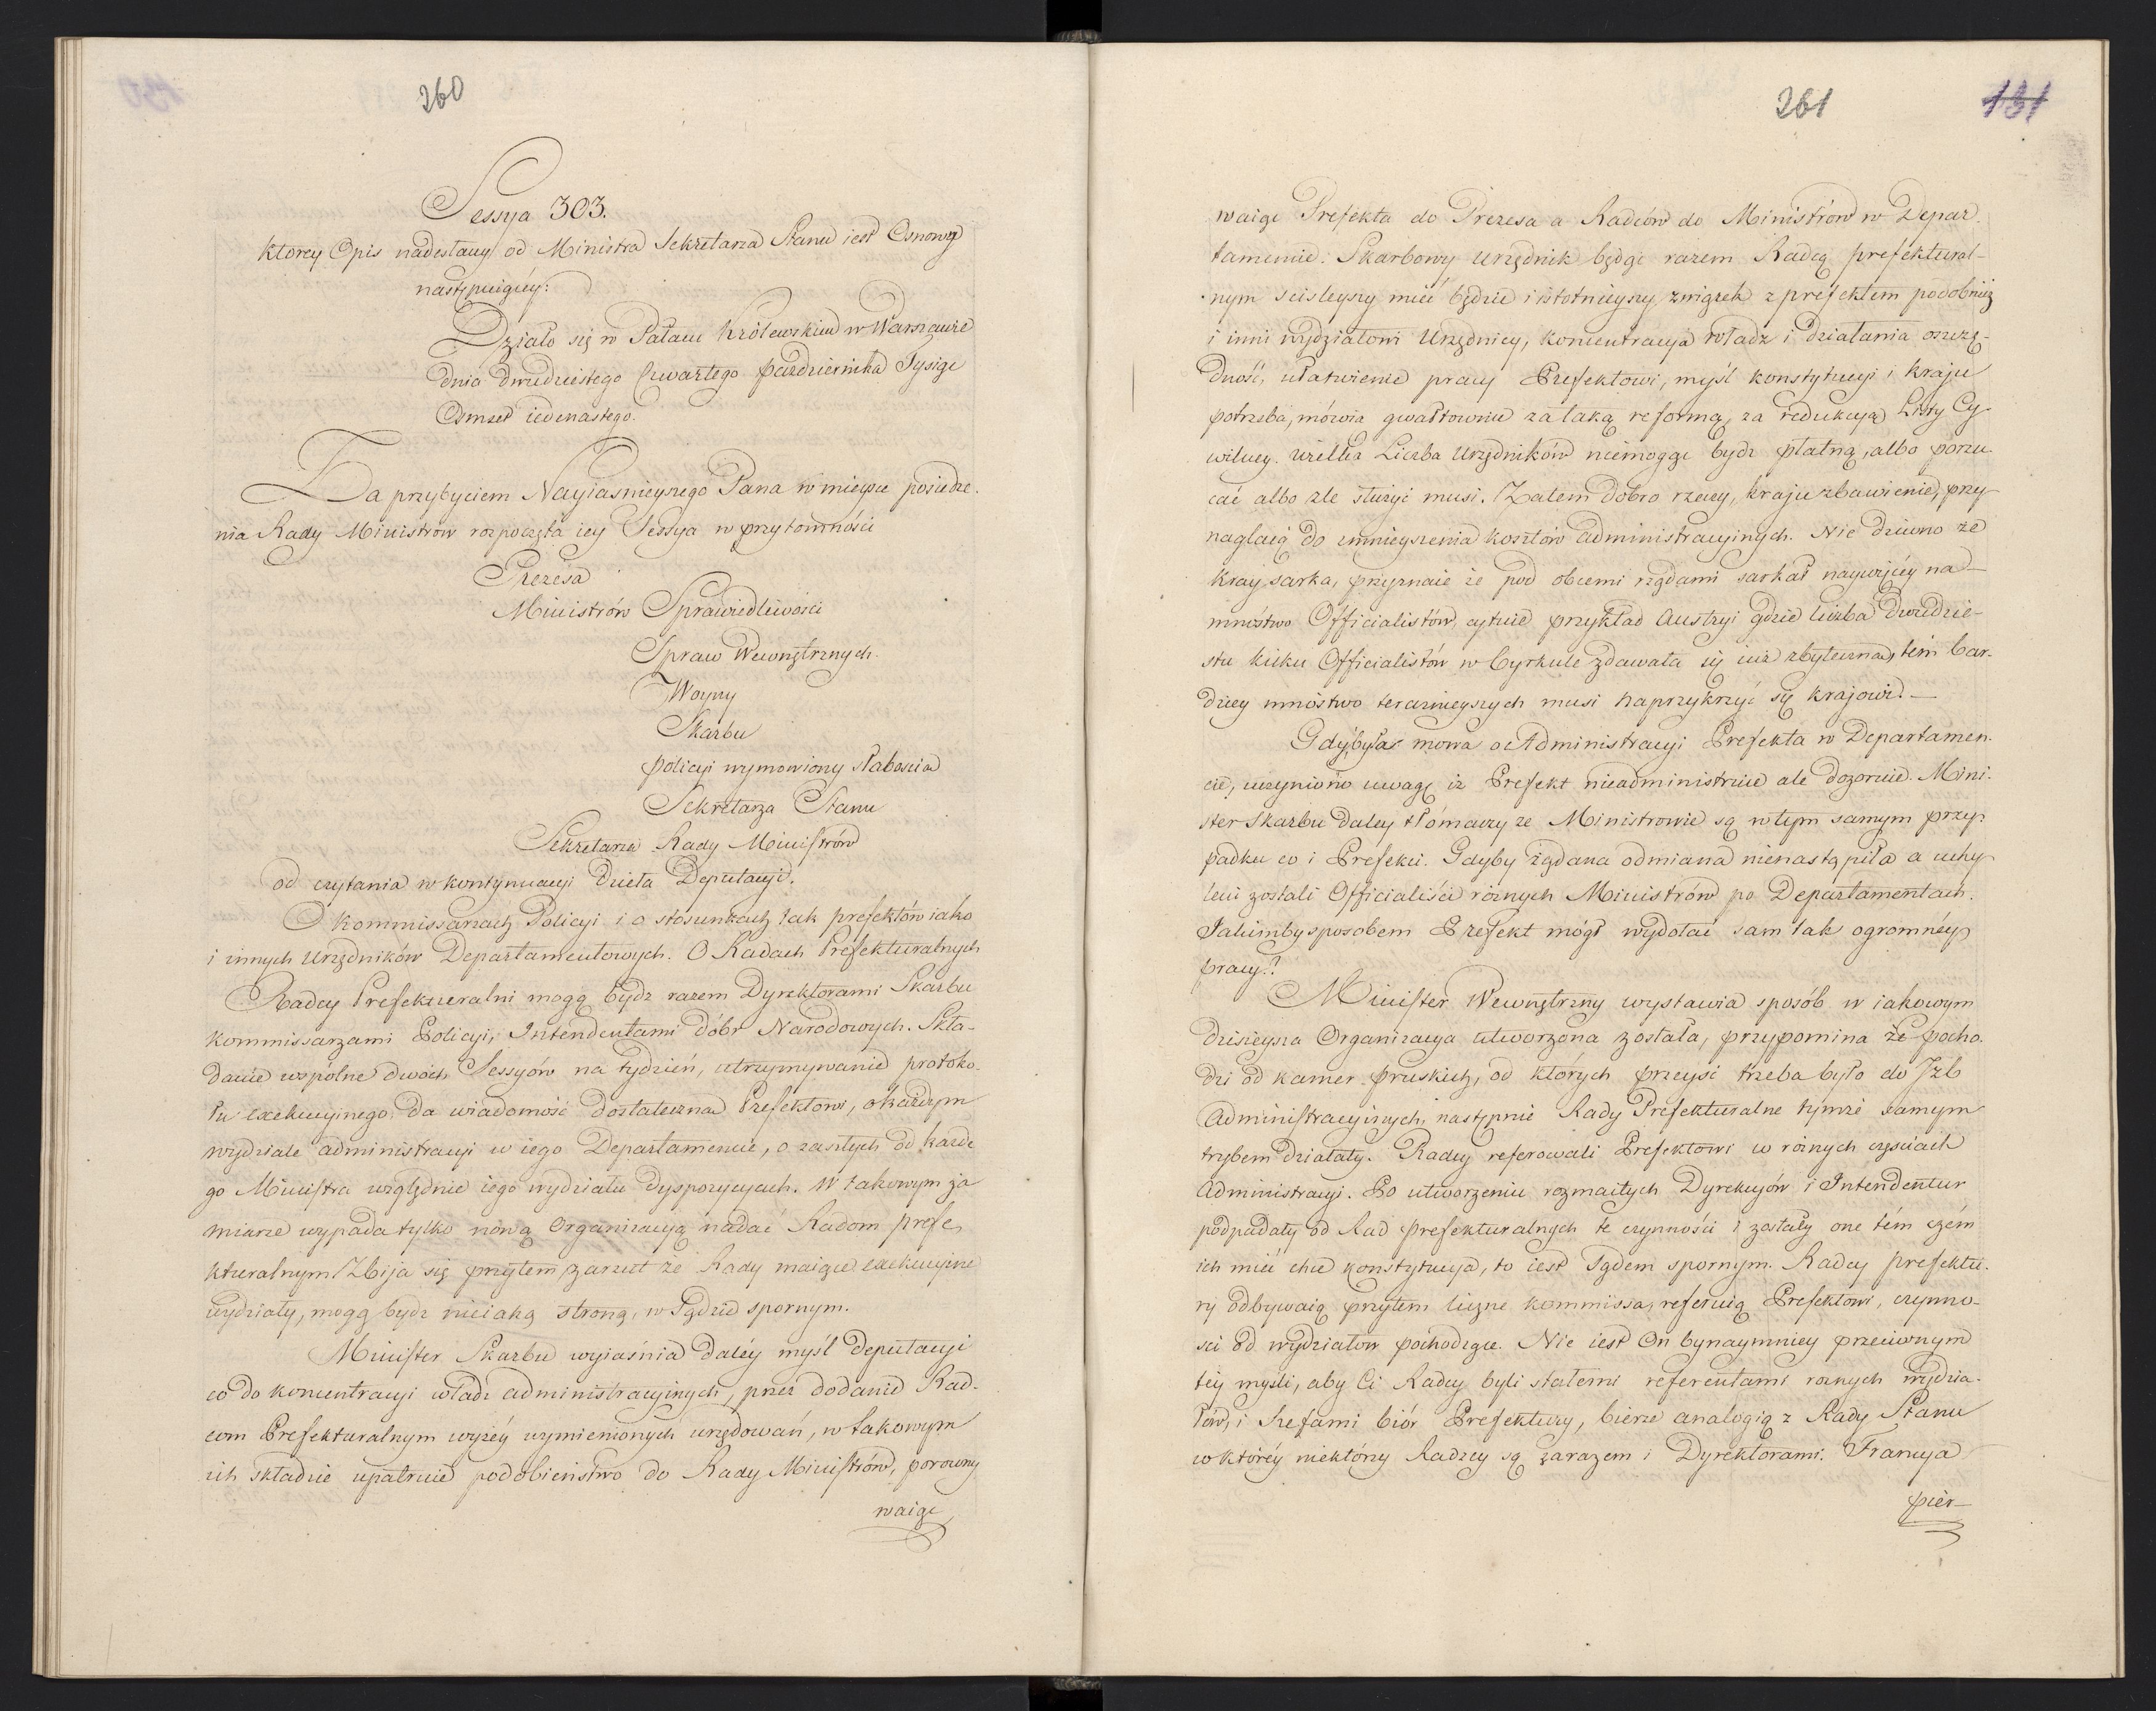 260
Sessya 303.
ktorey Opis nadesłany od Ministra Sekretarza Stanu iest Osnowy
następuiącey:
Działo się w Pałacu Królewskim w Warszawie
dnia dwudziestego Czwartego października Tysiąc
Osmset iedenastego.
Za przybyciem Nayiasnieyszego Pana w mieysce posiedze-
nia Rady Ministrow rozpoczęła iey Sessya w przytomności
Prezesa
Ministrów Sprawiedliwości
Spraw Wewnętrznych
Woyny
Skarbu
policyi wymowiony słabością
Sekretarza Stanu
Sekretarza Rady Ministrów
od czytania w kontynuacyi dzieła Deputacyi.
O kommissarzach Policyi i o stosunkach tak prefektów iako
i innych Urzędników Departamentowych. O Radach Prefekturalnych
Radcy Prefekturalni mogą bydz razem Dyrektorami Skarbu
kommissarzami Policyi, Intendentami dóbr Narodowych. Skła-
danie wspólne dwóch Sessyów na tydzień, utrzymywanie protoko-
łu exekucyinego, da wiadomość dostateczną Prefektowi, o każdym
wydziale administracyi w iego Departamencie, o zaszłych od każde
go Ministra względnie iego wydziału dyspozycyach. W takowym za
miarze wypada tylko nową Organizacyą nadać Radom prefe
kturalnym. Zbija się przytem zarzut że Rady maiące exekucyine
wydziały, mogą bydz nieiaką stroną, w Sądzie spornym.
Minister Skarbu wyiaśnia daléy myśl Deputacyi
co do koncentracyi władz administracyinych, przez dodanie Rad-
com Prefekturalnym wyżéy wymienionych urzędowań, w takowym
ich składzie upatruie podobieństwo do Rady Ministrów, porowny
waiąc
261
131
waiąc Prefekta do Prezesa a Radców do Ministrów w Depar-
tamencie. Skarbowy urzędnik będąc razem Radcą prefektural-
nym scisleyszy mieć będzie i istotnieyszy związek z prefektem podobnież
i inni wydziałowi Urzędnicy, koncentracya władz i działania oszczę-
dność, ułatwienie pracy Prefektowi, myśl konstytucyi i kraju
potrzeba, mówią gwałtownie za taką reformą, za redukcyą Listy Cy-
wilney. Wielka Liczba Urzędników niemogąc bydz płatną, albo porzu
cać albo zle służyć musi. Zatem dobro rzeczy, kraju zbawienie, przy
naglaią do zmnieyszenia kosztów administracyinych. Nie dziwno że
kray sarka, przyznaie że pod obcemi rządami sarkał naywięcéy na
mnóstwo Officialistów, cytuie przykład Austryi gdzie liczba dwudzie-
stu kilku Officialistów w Cyrkule zdawała się iuż zbyteczną, tém bar-
dziey mnóstwo teraznieyszych musi naprzykrzyć się krajowi. —
Gdy była mowa o Administracyi Prefekta w Departamen-
cie, uczyniono uwagę iż Prefekt nieadministruie ale dozoruie. Mini-
ster Skarbu daley tłómaczy ze Ministrowie są w tym samym przy-
padku co i Prefekci. Gdyby żądana odmiana nienastąpiła a uchy
leni zostali Officialiści róznych Ministrów po Departamentach.
Jakimby sposobem Prefekt mógł wydołać sam tak ogromnéy
pracy?
Minister Wewnętrzny wystawia sposób w iakowym
dzisieysza Organizacya utworzona została, przypomina że pocho-
dzi od kamer pruskich, od których przeyść trzeba było do Izb
Administracyinych, następnie Rady Prefekturalne tymże samym
trybem działały. Radcy referowali Prefektowi w róznych częściach
Administracyi. Po utworzeniu rozmaitych Dyrekcyów i Intendentur
podpadały od Rad prefekturalnych te czynności i zostały one tém czém
ich mieć chce konstytucya, to iest Sądem spornym. Radcy prefektu-
ry odbywaią przytem liczne kommissa, referuią Prefektowi, czynno-
sci od wydziałów pochodzące. Nie iest On bynaymniey przeciwnym
téy myśli, aby Ci Radcy byli stałemi referentami roznych wydzia-
łów, i Szefami biór Prefektury, bierze analogią z Rady Stanu
w któréy niektórzy Radzcy są zarazem i Dyrektorami. Francya
pier-